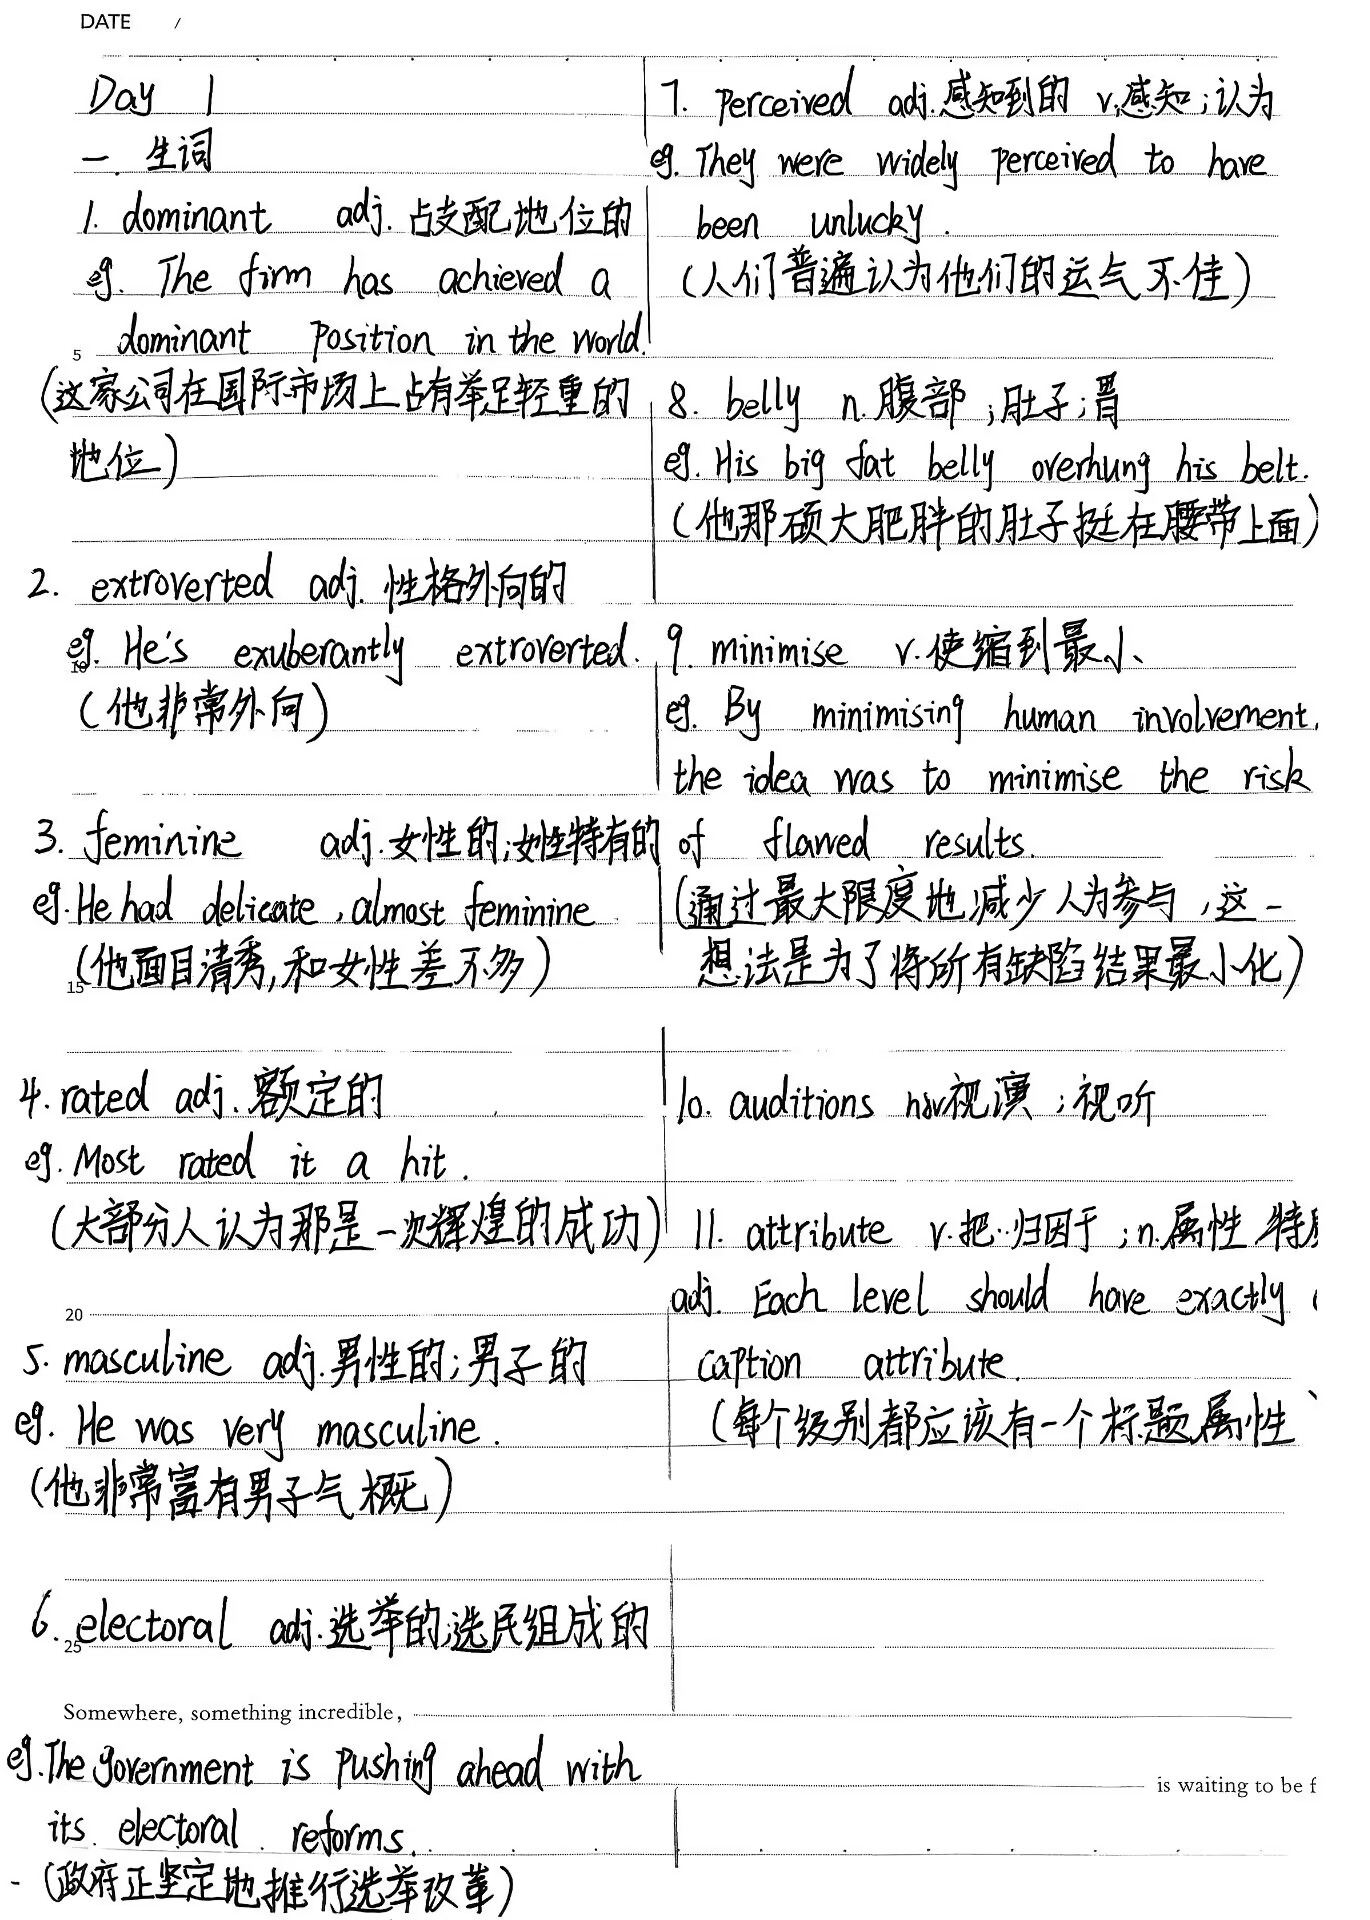 DATE /
Day 1
一. 生词
1. dominant adj. 占支配地位的
eg. The firm has achieved a
dominant position in the world.
5
(这家公司在国际市场上占有举足轻重的
地位)
2. extroverted adj. 性格外向的
eg. He's exuberantly extroverted.
10
(他非常外向)
3. feminine adj. 女性的;女性特有的
eg. He had delicate, almost feminine
(他面目清秀,和女性差不多)
15
4. rated adj. 额定的
eg. Most rated it a hit.
(大部分人认为那是一次辉煌的成功)
20
5. masculine adj. 男性的;男子的
eg. He was very masculine.
(他非常富有男子气概)
6. electoral adj. 选举的;选民组成的
25
Somewhere, something incredible,
eg. The government is pushing ahead with
its electoral reforms.
(政府正坚定地推行选举改革)
7. perceived adj. 感知到的 v. 感知;认为
eg. They were widely perceived to have
been unlucky.
(人们普遍认为他们的运气不佳)
8. belly n. 腹部;肚子;胃
eg. His big fat belly overhung his belt.
(他那硕大肥胖的肚子挺在腰带上面)
9. minimise v. 使缩到最小
eg. By minimising human involvement,
the idea was to minimise the risk
of flawed results.
(通过最大限度地减少人为参与,这一
想法是为了将所有缺陷结果最小化)
10. auditions 视演;视听
11. attribute v. 把··归因于;n. 属性 特
adj. Each level should have exactly
caption attribute.
(每个级别都应该有一个标题属性
is waiting to be f